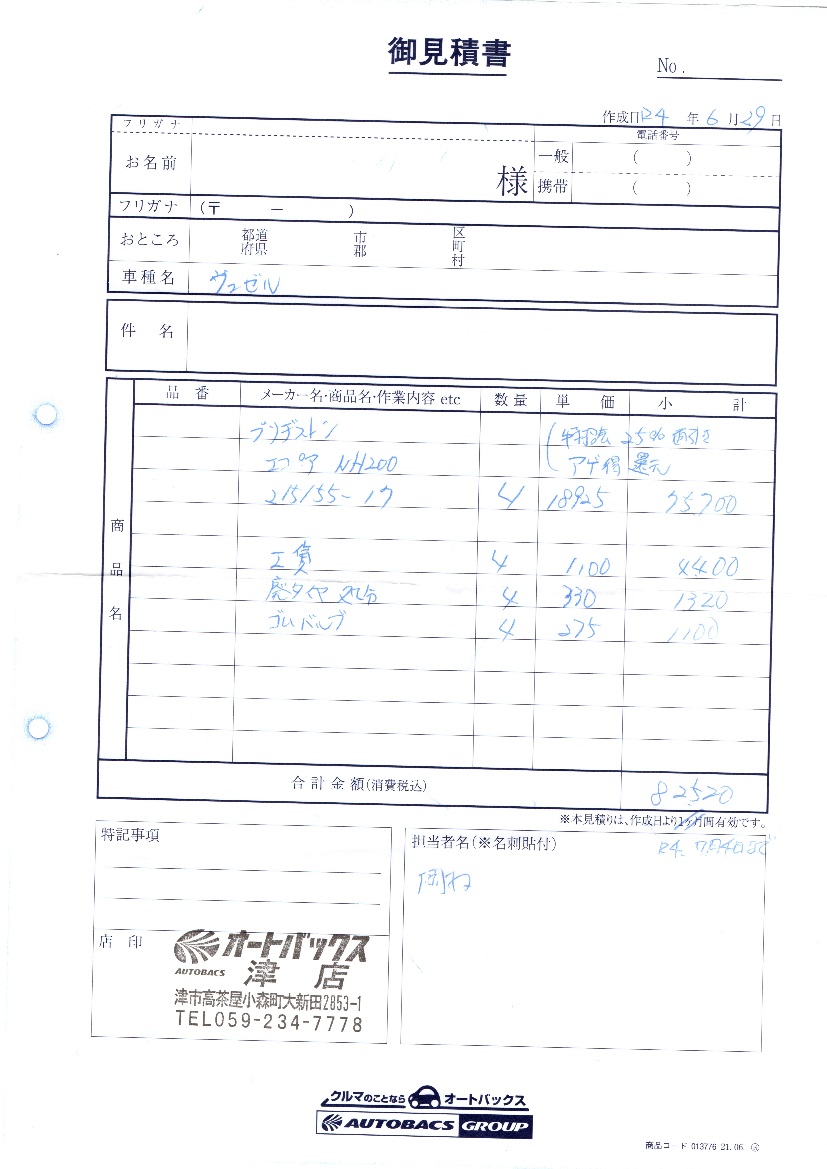 御見積書
No.
作成日R4 年 6 月 29 日
フリガナ
電話番号
お名前
様
一般 ( )
携帯 ( )
フリガナ (〒 ー )
おところ 都道府県 市郡 区町村
車種名 ヴェゼル
件 名
商品名
品 番 メーカー名・商品名・作業内容 etc 数量 単 価 小 計
ブリヂストン 25% 値引き
エコピア NH200 還元
215/55-17 4 18925 75700
工賃 4 1,100 4400
廃タイヤ 処分 4 330 1320
ゴムバルブ 4 275 1100
合計金額(消費税込) 82520
※本見積りは、作成日より1ヶ月間有効です。
R4. 7月4日まで
特記事項
担当者名(※名刺貼付)
店 印
オートバックス
AUTOBACS
津 店
津市高茶屋小森町大新田2853-1
TEL059-234-7778
クルマのことなら オートバックス
AUTOBACS GROUP
商品コード 013776 21.06.